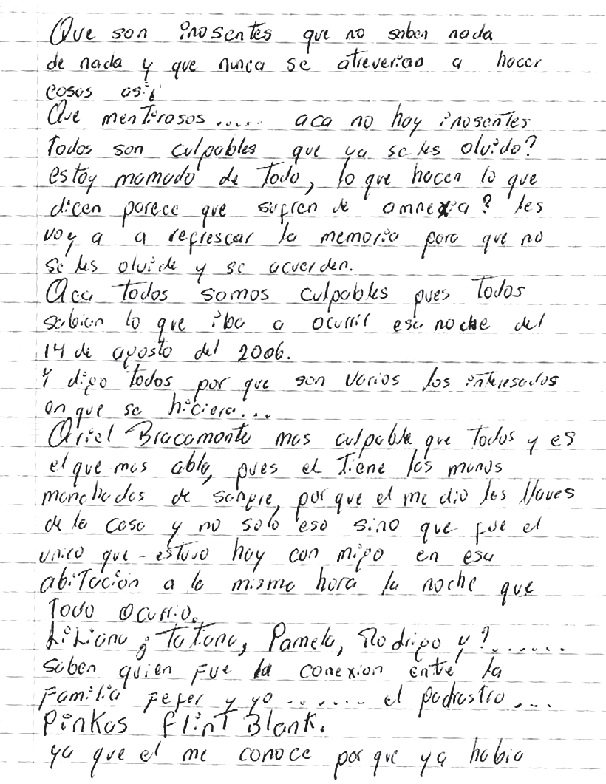 Que son inosentes que no saben nada
de nada y que nunca se atreverian a hacer
cosas asi,
Que mentirosos..... aca no hay inosentes
todos son culpables que ya se les olvido?
estoy mamado de todo, lo que hacen lo que
dicen parece que sufren de amnexia? les
voy a a refrescar la memoria para que no
se les olvide y se acuerden.
Aca todos somos culpables pues todos
sabian lo que iba a ocurrir esa noche del
14 de agosto del 2006.
Y digo todos por que son varios los interesados
en que se hiciera...
Ariel Bracamonte mas culpable que todos y es
el que mas abla, pues el tiene las manos
manchadas de sangre, por que el me dio las llaves
de la casa y no solo eso sino que fue el
unico que estuvo hay con migo en esa
abitación a la misma hora la noche que
todo ocurrio.
Liliana, Tatiana, Pamela, Rodrigo y ?......
saben quien fue la conexion entre la
familia fefer y yo ....... el padrastro...
Pinkas flint Blank.
ya que el me conoce por que ya habia